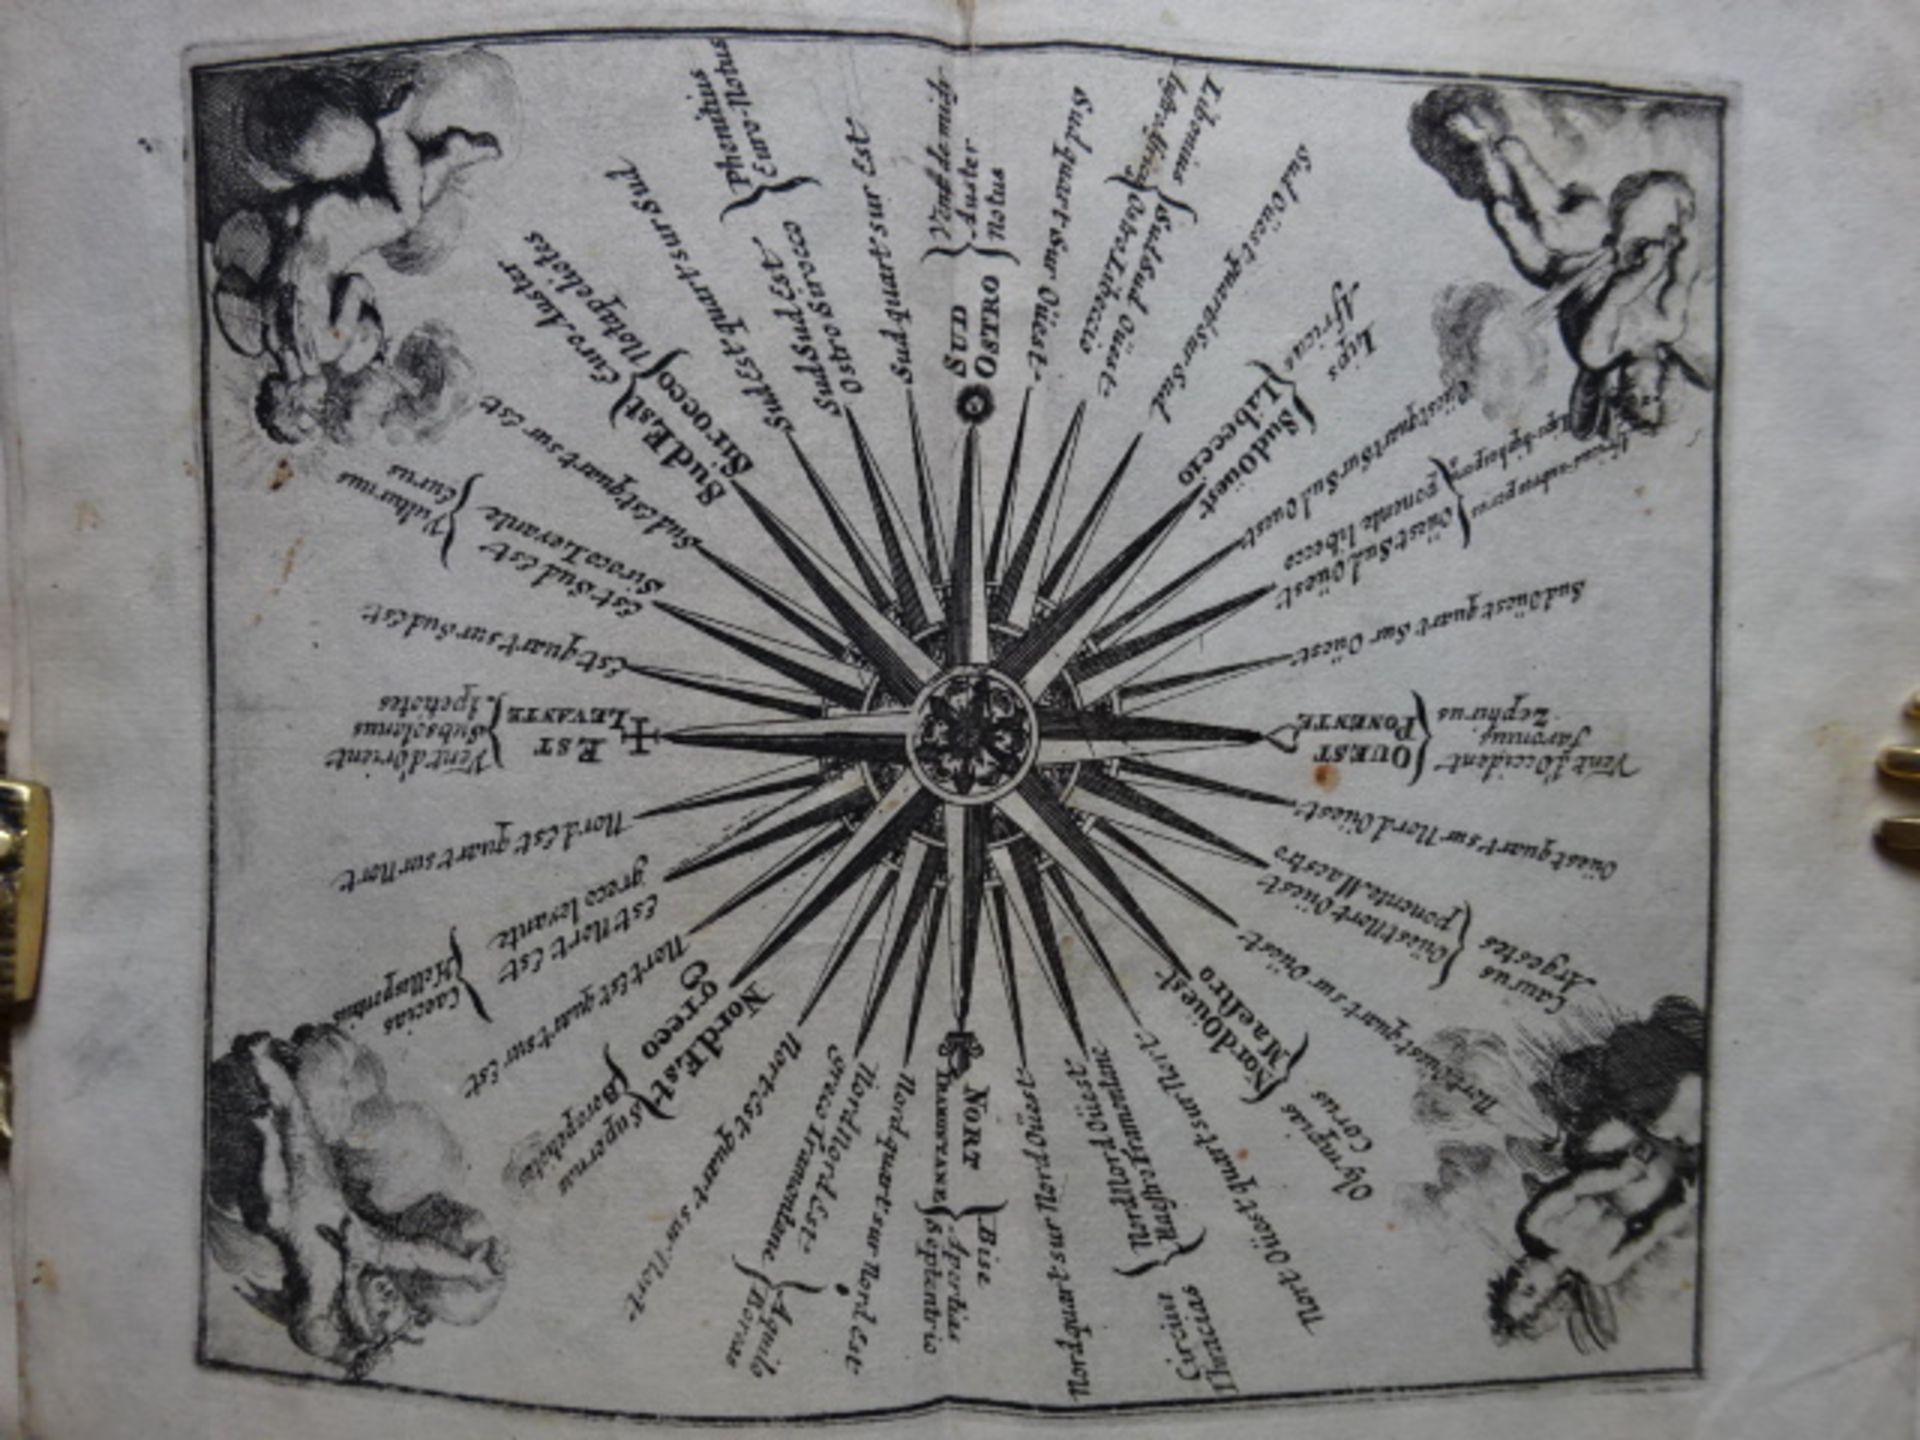 SUD
OSTRO
Auster
Notus
Sud quart sur Oüest
Sud Sud Oüest
Ostro Libeccio
Libonius
Sud Oüest quart sur Sud
Sud Oüest
Libeccio
Lips
Africus
Oüest quart sur Sud Oüest
Oüest Sud Oüest
ponente libecco
Sud Oüest quart sur Oüest
OUEST
PONENTE
Vent d'Occident
Favonius
Zephirus
Oüest quart sur Nord Oüest
Oüest Nort Oüest
ponente Maestro
Caurus
Argestes
Nort Oüest quart sur Oüest
Nord Oüest
Maestro
Olympias
Corus
Nort Oüest quart sur Nort
Nord Nord Oüest
Maestro Tramontane
Circius
Thracias
Nord quart sur Nort Oüest
NORT
TRAMONTANE
Bise
Apertias
Septentrio
Nord quart sur Nord Est
Nord Nord Est
greco Tramontane
Aquilo
Boreas
Nort Est quart sur Nort
Nord Est
greco
Supernas
Boropeliotes
Nort Est quart sur Est
Est Nort Est
greco levante
Caecias
Nord Est quart sur Nort
EST
LEVANTE
Vent d'Orient
Subsolanus
Apeliotes
Est quart sur Sud Est
Est Sud Est
Siroco Levante
Vulturnus
Eurus
Sud Est quart sur Est
Sud Est
Sirocco
Euro Auster
Notapeliotes
Sud Est quart sur Sud
Sud Sud Est
Ostro Sirocco
Phenitius
Euro-Notus
Sud quart sur Est